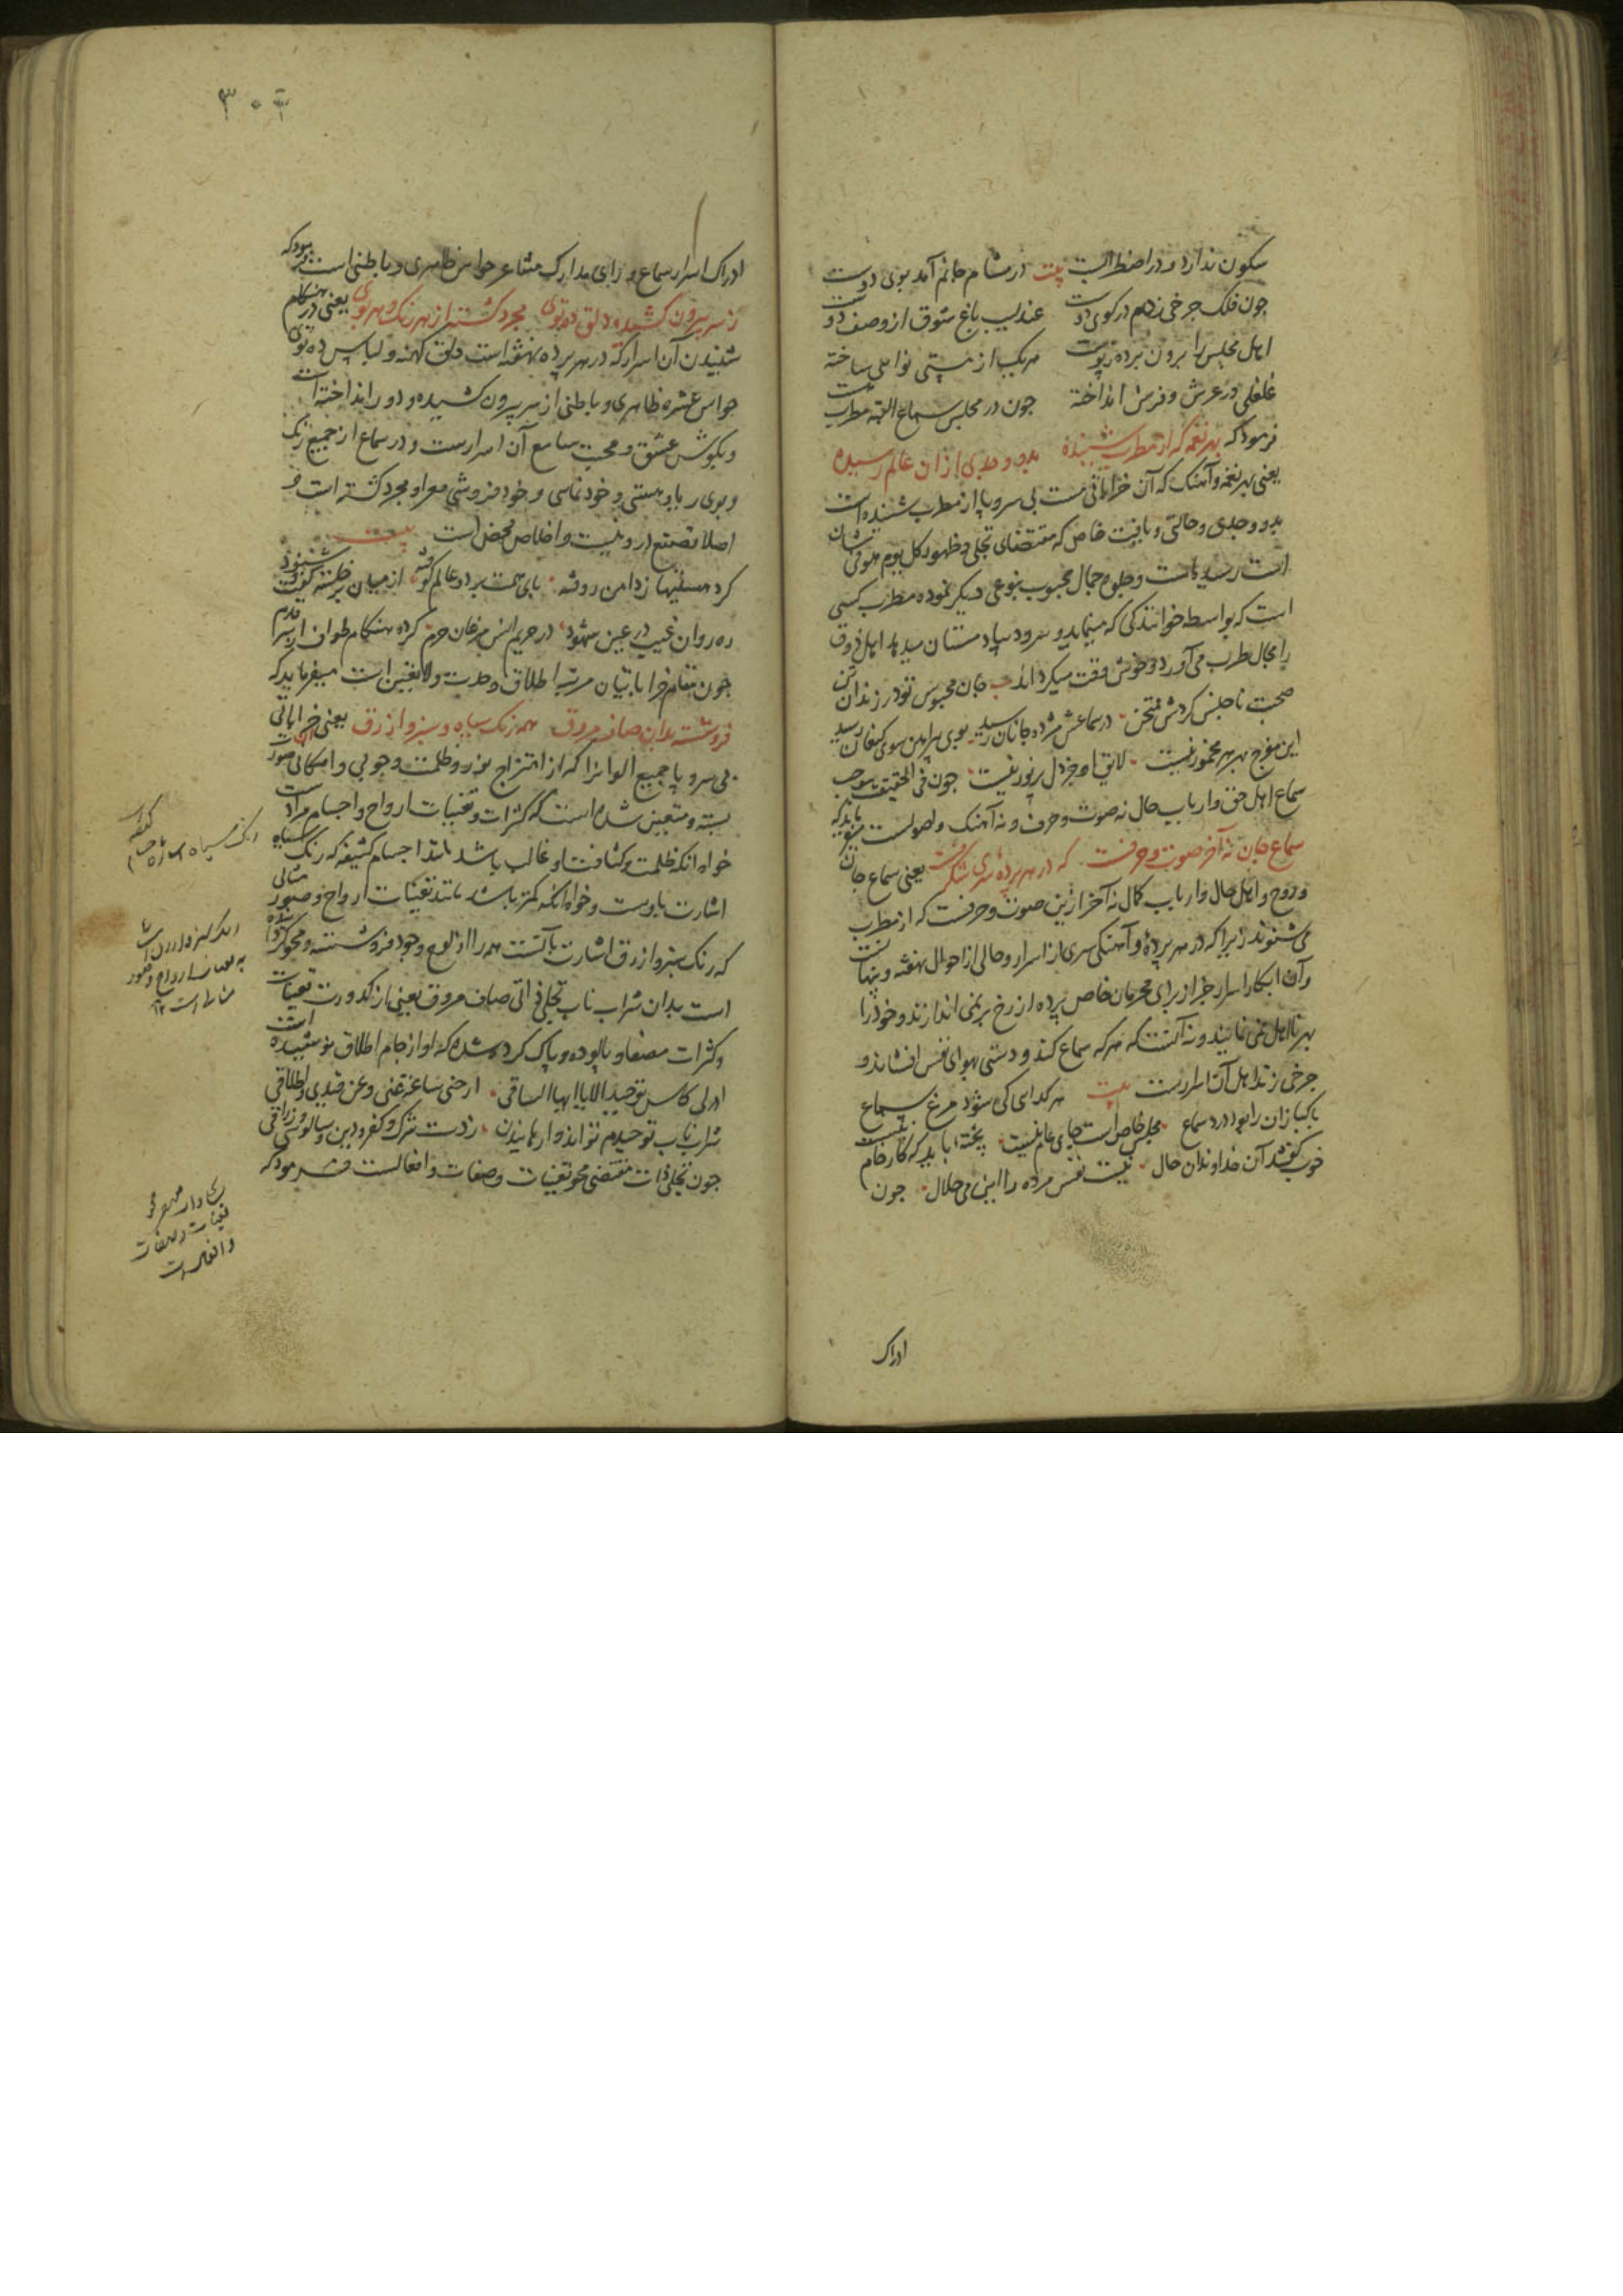 سکون ندارد و در اضطرابست بیت در مشام جانم آمد بوی دوست
چون فلک چرخی زدم در کوی دوست عندلیب باغ شوق از وصف دوست
اهل مجلس را برون برده ز پوست هر یک از مستی نوایی ساخته
غلغلی در عرش و فرش انداخته چون در مجلس سماع البته مطربست
فرمود که بهر نغمه که از مطرب شنیده بدو وجدی از آن عالم رسیده
یعنی بهر نغمه و آهنک که آن خراباتی مست بی سر و پا از مطرب شنیده است
بدو وجدی و حالتی و یافت خاص که مقتضای تجلی و ظهور کل یوم هو فی شان
است رسیده است و جلوه جمال محبوب بنوعی دیکر نموده مطرب کسی
است که بواسطه خوانندکی که مینماید و سرود بیاد مستان میدهد اهل ذوق
را بحال طرب می آورد و خوش وقت میکرداند جان محبوس تو در زندان تن
صحبت ناجنس کردش ممتحن در سماعش مژده جانان رسید بوی پیراهن سوی کنعان رسید
این مفرح بهر هر مخمور نیست لایق او جز دل پر نور نیست چون فی الحقیقه موجب
سماع اهل حق و ارباب حال نه صوت و حرف و نه آهنک و اصولست میفرماید که
سماع جان نه آخر صوت و حرفست که در هر پرده سری شکرفست یعنی سماع جان
و روح و اهل حال و ارباب کمال نه آخر ازین صوت و حرفست که از مطرب
می شنوند زیرا که در هر پرده و آهنکی سری از اسرار و حالی از احوال نهفته و پنهانست
و آن ابکار اسرار جز از برای محرمان خاص پرده از رخ بر نمی اندازند و خود را
بهر نااهل نمی نمایند و نه آنست که هر که سماع کند و دستی بهوای نفس افشاند و
چرخی زند اهل آن اسرارست بیت هر کدای کی شود مرغ سماع
پاکبازان را بود درد سماع مجلس خاص است جای عام نیست پخته باید که کار خام نیست
خوب کفتند آن خداوندان حال نیست نفس مرده را این می حلال چون
ادراک
۳۰۴
ادراک اسرار سماع ورای مدارک مشاعر حواس ظاهری و باطنی است فرمود که
ز سر بیرون کشیده دلق ده توی مجرد کشته از هر رنک و هر بوی یعنی در هنکام
شنیدن آن اسرار که در هر پرده نهفته است دلق کهنه و لباس ده توی
حواس عشره ظاهری و باطنی از سر بیرون کشیده و دور انداخته است
و بکوش عشق و محبت سامع آن اسرارست و در سماع از جمیع رنک
و بوی ریا و هستی و خودنمایی و خود فروشی معرا و مجرد کشته است و
اصلا تصنع در و نیست و اخلاص محض است بیت
کرد هستیها ز دامن روفته پای همت بر دو عالم کوفته از میان برخاسته کفت و شنود
ره روان غیب در عین شهود در حریم انس مرغان حرم کرده هنکام طواف از سر قدم
چون مقام خراباتیان مرتبه اطلاق و وحدت و لا تعین است میفرماید که
فروشسته بدان صاف مروق همه رنک سیاه و سبز و ازرق یعنی خراباتی
بی سر و پا جمیع الوانرا که از امتزاج نور و ظلمت وجوبی و امکانی صور
بسته و متعین شده است که کثرات و تعینات ارواح و اجسام مراد است
خواه انکه ظلمت و کثافت او غالب باشد مانند اجسام کثیفه که رنک سیاه
اشارت باوست و خواه انکه کمتر باشد مانند تعینات ارواح و صور مثالی
که رنک سبز و ازرق اشارت بآنست همه را از لوح وجود فروشسته و محو کرده
است بدان شراب ناب تجلی ذاتی صاف مروق یعنی از کدورت تعینات
و کثرات مصفا و پالوده و پاک کرده شده که او از جام اطلاق نوشیده است
ادر لی کاس توحید الا یا ایها الساقی ارحنی ساعة عنی و عن قیدی و اطلاقی
شراب ناب توحیدم تواند وارهانیدن ز دست شرک و کفر و دین و سالوسی و زراقی
چون تجلی ذات مقتضی محو تعینات و صفات و افعالست فرمود که
تعینات و صفات